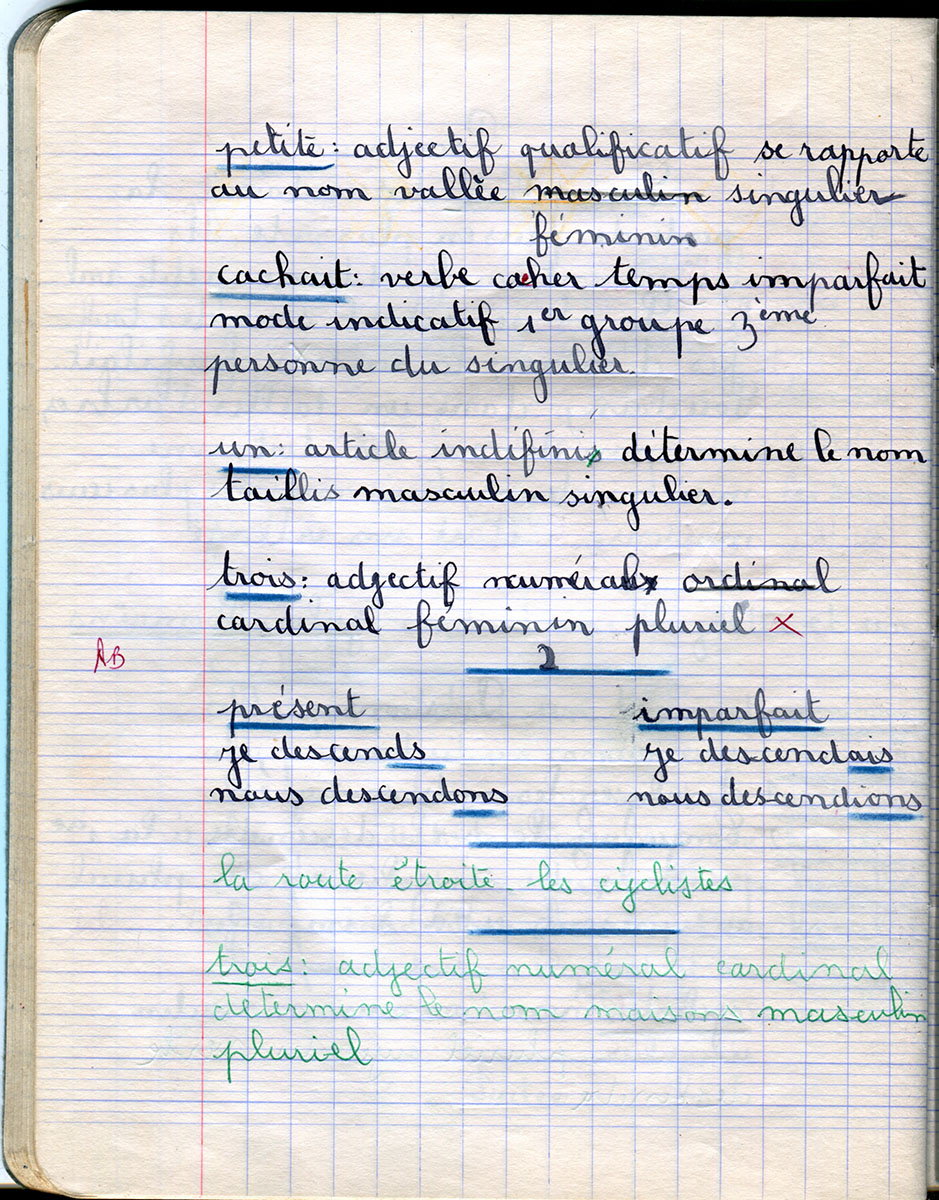 petite : adjectif qualificatif se rapporte
au nom vallée masculin singulier
féminin
cachait : verbe cacher temps imparfait
mode indicatif 1er groupe 3ème
personne du singulier.
un : article indifini détermine le nom
taillis masculin singulier.
trois : adjectif numéral ordinal
cardinal féminin pluriel x
AB
2
présent imparfait
je descends je descendais
nous descendons nous descendions
la route étroite - les cyclistes
trois : adjectif numéral cardinal
détermine le nom maisons masculin
pluriel